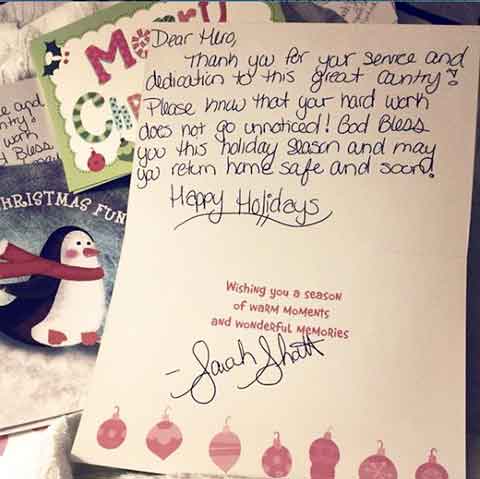 Dear Hero,
Thank you for your service and
dedication to this great country!
Please know that your hard work
does not go unnoticed! God Bless
you this holiday season and may
you return home safe and soon!
Happy Holidays
Wishing you a season
of warm moments
and wonderful memories
-Sarah Shatt
Merry
CHRISTMAS FUN
ce and
ntry!
work
d Bless